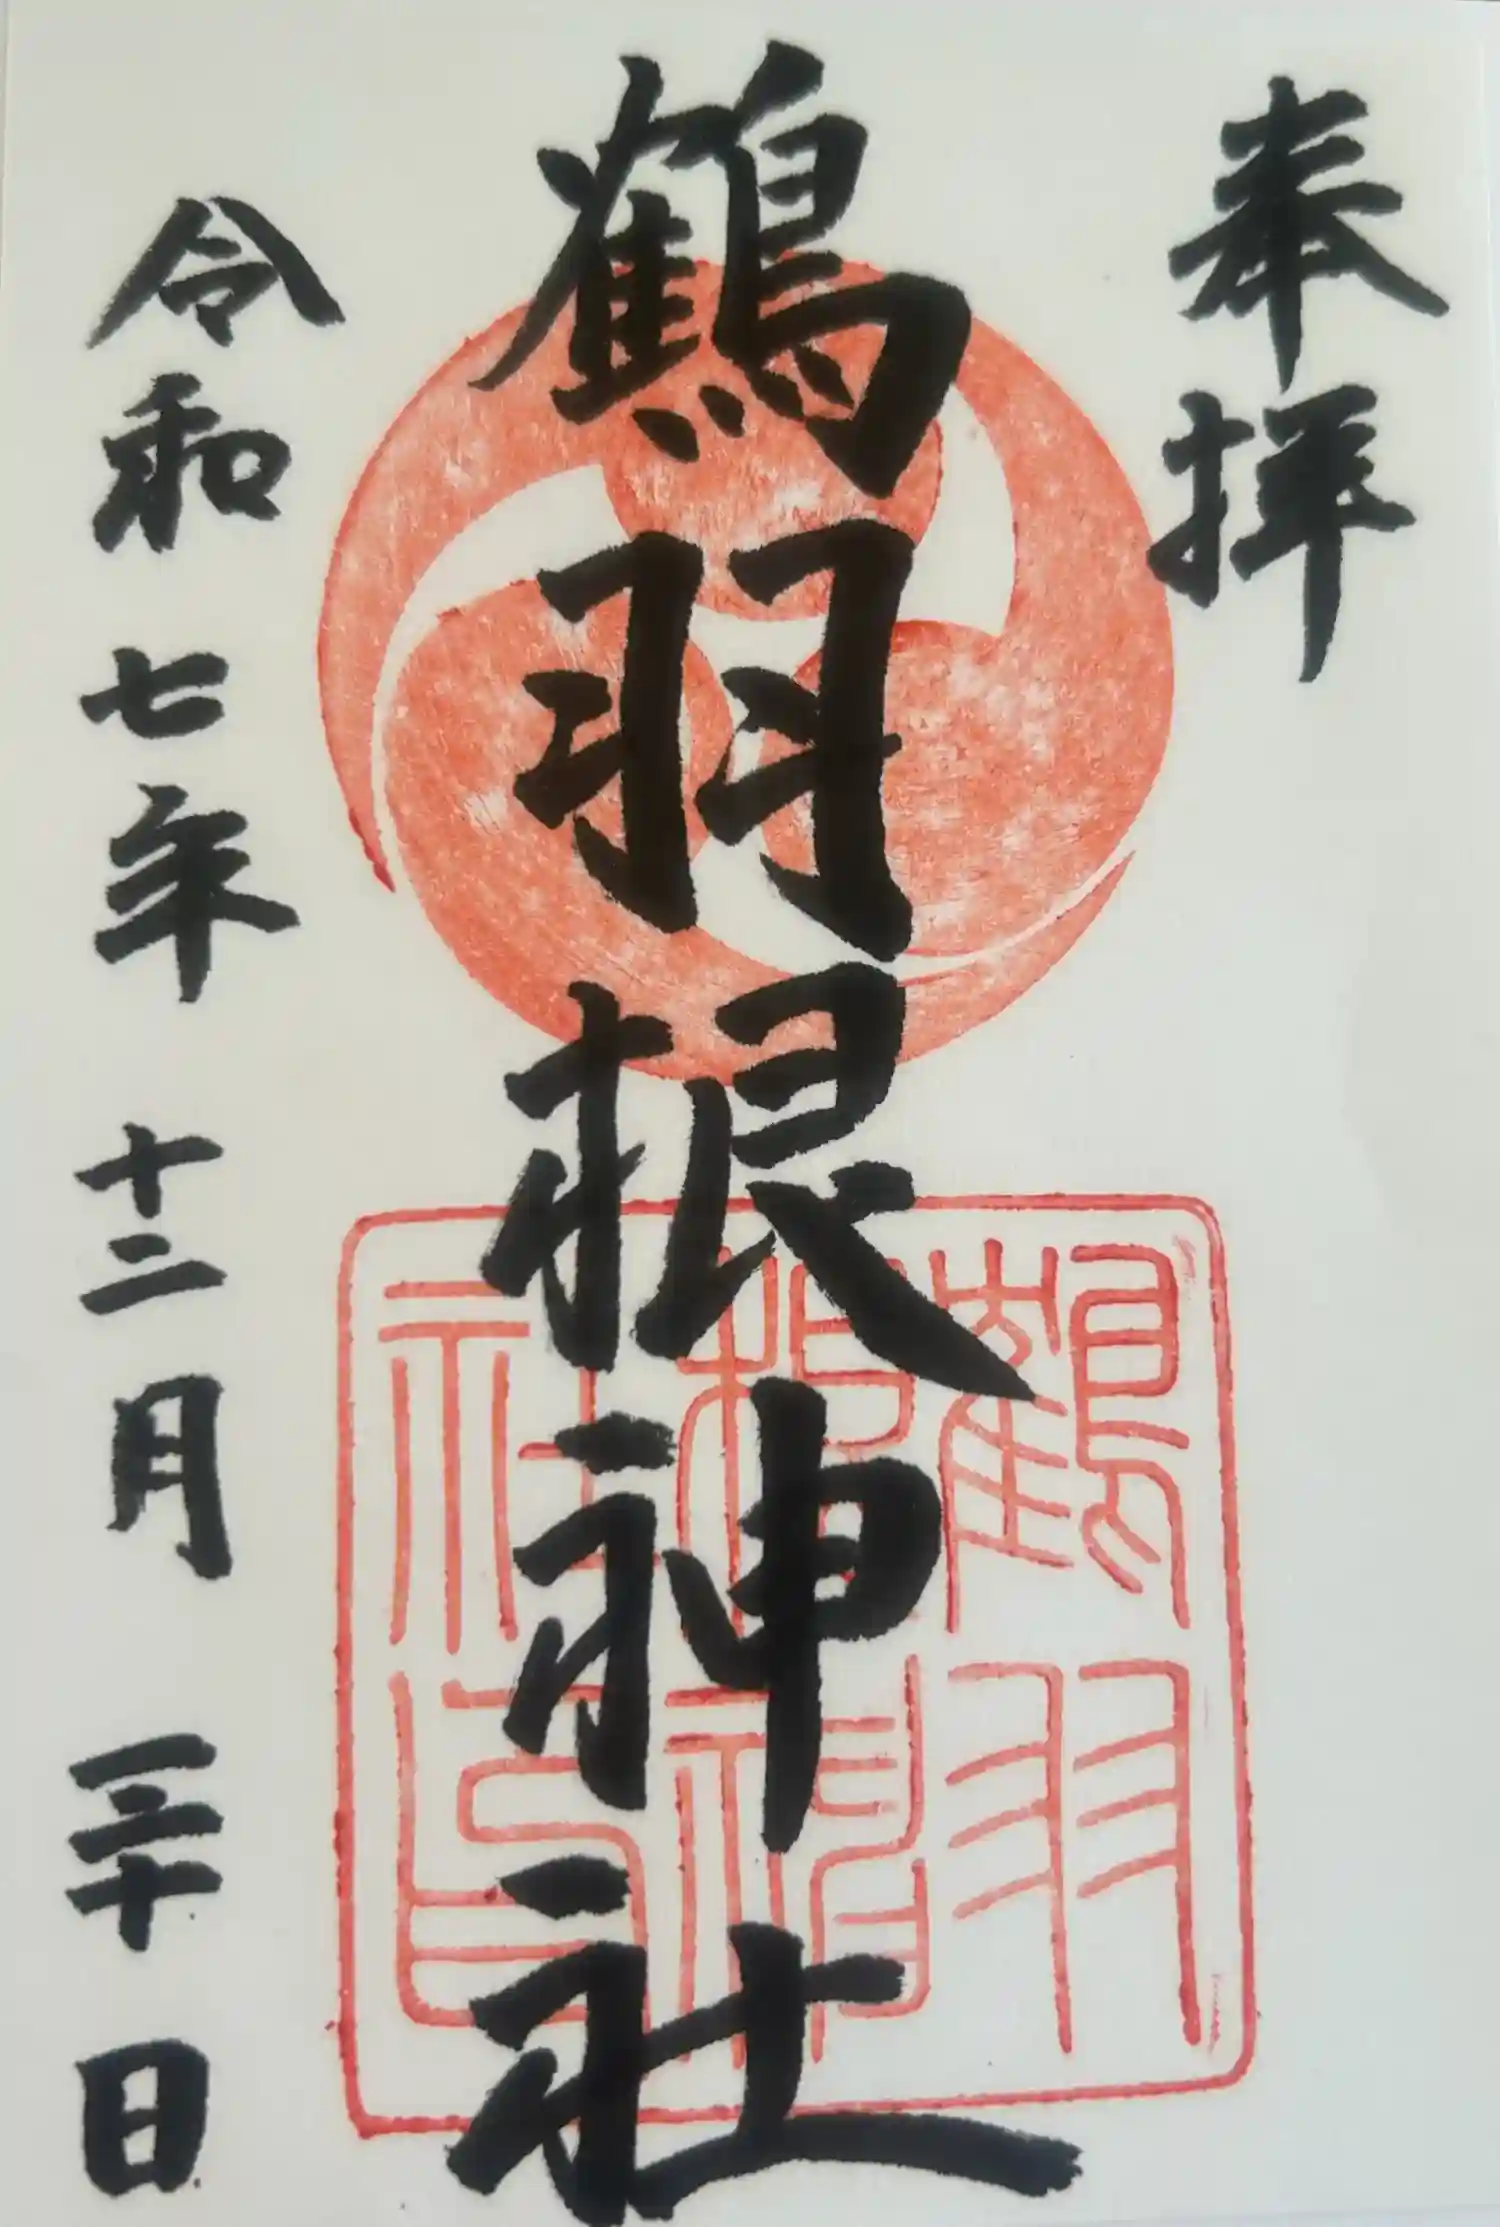 奉拝
鶴羽根神社
令和七年十二月三十日
鶴羽根神社印